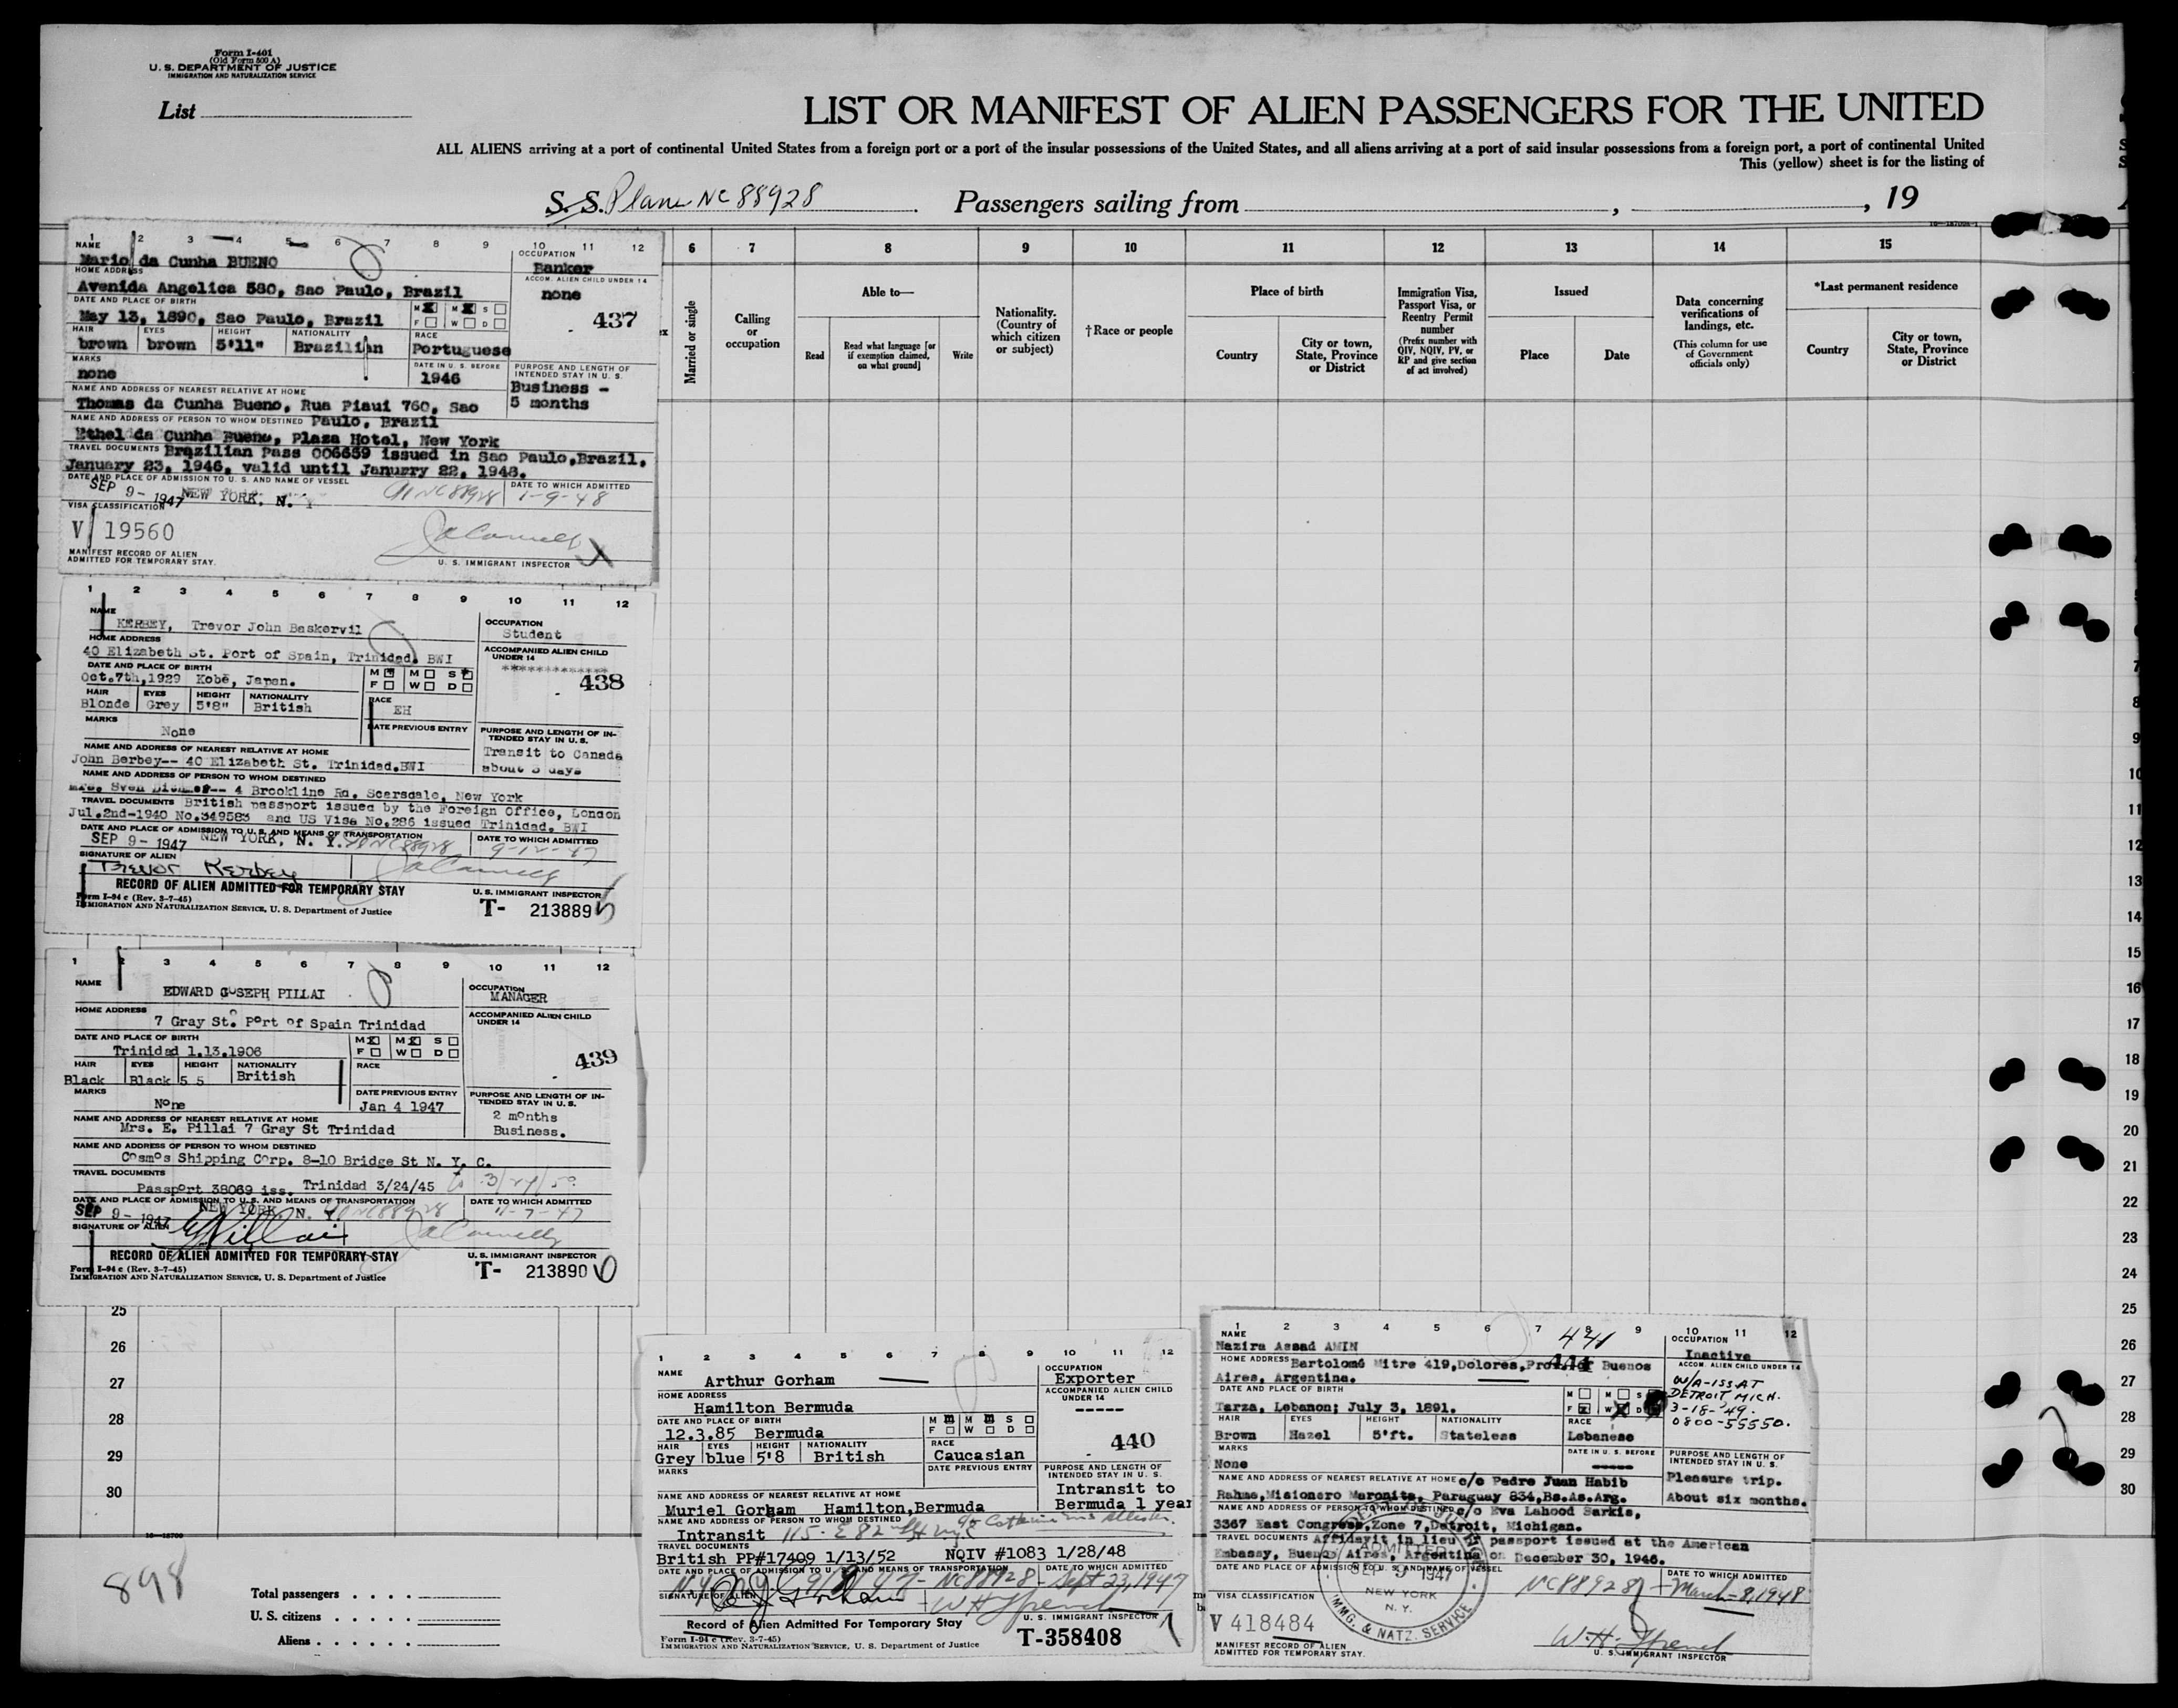 Form I-401
(Old Form 500 A)
U. S. DEPARTMENT OF JUSTICE
IMMIGRATION AND NATURALIZATION SERVICE
List
LIST OR MANIFEST OF ALIEN PASSENGERS FOR THE UNITED
ALL ALIENS arriving at a port of continental United States from a foreign port or a port of the insular possessions of the United States, and all aliens arriving at a port of said insular possessions from a foreign port, a port of continental United
This (yellow) sheet is for the listing of
S. S. Plane NC 88928 Passengers sailing from , , 19
6 7 8 9 10 11 12 13 14 15
Married or single
Calling or occupation
Able to—
Read
Read what language [or if exemption claimed, on what ground]
Write
Nationality. (Country of which citizen or subject)
†Race or people
Place of birth
Country
City or town, State, Province or District
Immigration Visa, Passport Visa, or Reentry Permit number
(Prefix number with QIV, NQIV, PV, or RP and give section of act involved)
Issued
Place
Date
Data concerning verifications of landings, etc.
(This column for use of Government officials only)
*Last permanent residence
Country
City or town, State, Province or District
1 2 3 4 5 6 7 8 9 10 11 12
NAME
Mario da Cunha BUENO
OCCUPATION
Banker
HOME ADDRESS
Avenida Angelica 580, Sao Paulo, Brazil
ACCOM. ALIEN CHILD UNDER 14
none
DATE AND PLACE OF BIRTH
May 13, 1890, Sao Paulo, Brazil
M M S
F W D
437
HAIR EYES HEIGHT NATIONALITY RACE
brown brown 5'11" Brazilian Portuguese
MARKS
none
DATE IN U. S. BEFORE
1946
PURPOSE AND LENGTH OF INTENDED STAY IN U. S.
Business -
5 months
NAME AND ADDRESS OF NEAREST RELATIVE AT HOME
Thomas da Cunha Bueno, Rua Piaui 760, Sao
NAME AND ADDRESS OF PERSON TO WHOM DESTINED Paulo, Brazil
Ethel da Cunha Bueno, Plaza Hotel, New York
TRAVEL DOCUMENTS Brazilian Pass 006659 issued in Sao Paulo,Brazil,
January 23, 1946, valid until January 22, 1948.
DATE AND PLACE OF ADMISSION TO U. S. AND NAME OF VESSEL
DATE TO WHICH ADMITTED
SEP 9 - 1947 NEW YORK, N. Y. NC88928 1-9-48
VISA CLASSIFICATION
V 19560
MANIFEST RECORD OF ALIEN
ADMITTED FOR TEMPORARY STAY.
U. S. IMMIGRANT INSPECTOR
1 2 3 4 5 6 7 8 9 10 11 12
NAME
KERBEY, Trevor John Baskervil
OCCUPATION
Student
HOME ADDRESS
40 Elizabeth St. Port of Spain, Trinidad. BWI
ACCOMPANIED ALIEN CHILD UNDER 14
DATE AND PLACE OF BIRTH
Oct.7th,1929 Kobe, Japan.
M M S
F W D
438
HAIR EYES HEIGHT NATIONALITY RACE
Blonde Grey 5'8" British EH
MARKS
None
DATE PREVIOUS ENTRY
PURPOSE AND LENGTH OF INTENDED STAY IN U. S.
Transit to Canada
about 3 days
NAME AND ADDRESS OF NEAREST RELATIVE AT HOME
John Berbey-- 40 Elizabeth St. Trinidad.BWI
NAME AND ADDRESS OF PERSON TO WHOM DESTINED
Mrs. Sven -- 4 Brookline Rd. Scarsdale, New York
TRAVEL DOCUMENTS British passport issued by the Foreign Office, London
Jul.2nd-1940 No.349583 and US Visa No.286 issued Trinidad. BWI
DATE AND PLACE OF ADMISSION TO U. S. AND MEANS OF TRANSPORTATION
DATE TO WHICH ADMITTED
SEP 9 - 1947 NEW YORK, N. Y. NC88928 9-12-47
SIGNATURE OF ALIEN
Trevor Kerbey
RECORD OF ALIEN ADMITTED FOR TEMPORARY STAY
U. S. IMMIGRANT INSPECTOR
Form I-94 c (Rev. 3-7-45)
IMMIGRATION AND NATURALIZATION SERVICE, U. S. Department of Justice
T- 213889
1 2 3 4 5 6 7 8 9 10 11 12
NAME
EDWARD GUSEPH PILLAI
OCCUPATION
MANAGER
HOME ADDRESS
7 Gray St. Port of Spain Trinidad
ACCOMPANIED ALIEN CHILD UNDER 14
DATE AND PLACE OF BIRTH
Trinidad 1.13.1906
M M S
F W D
439
HAIR EYES HEIGHT NATIONALITY RACE
Black Black 5 5 British
MARKS
None
DATE PREVIOUS ENTRY
Jan 4 1947
PURPOSE AND LENGTH OF INTENDED STAY IN U. S.
2 months
Business.
NAME AND ADDRESS OF NEAREST RELATIVE AT HOME
Mrs. E. Pillai 7 Gray St Trinidad
NAME AND ADDRESS OF PERSON TO WHOM DESTINED
Cosmos Shipping Corp. 8-10 Bridge St N. Y. C.
TRAVEL DOCUMENTS
Passport 38069 iss. Trinidad 3/24/45
DATE AND PLACE OF ADMISSION TO U. S. AND MEANS OF TRANSPORTATION
DATE TO WHICH ADMITTED
SEP 9 - 1947 NEW YORK, N. Y. NC88928 11-7-47
SIGNATURE OF ALIEN
E Pillai
RECORD OF ALIEN ADMITTED FOR TEMPORARY STAY
U. S. IMMIGRANT INSPECTOR
Form I-94 c (Rev. 3-7-45)
IMMIGRATION AND NATURALIZATION SERVICE, U. S. Department of Justice
T- 213890
1 2 3 4 5 6 7 8 9 10 11 12
NAME
Arthur Gorham
OCCUPATION
Exporter
HOME ADDRESS
Hamilton Bermuda
ACCOMPANIED ALIEN CHILD UNDER 14
-----
DATE AND PLACE OF BIRTH
12.3.85 Bermuda
M M S
F W D
440
HAIR EYES HEIGHT NATIONALITY RACE
Grey blue 5'8 British Caucasian
MARKS
DATE PREVIOUS ENTRY
PURPOSE AND LENGTH OF INTENDED STAY IN U. S.
Intransit to
Bermuda 1 year
NAME AND ADDRESS OF NEAREST RELATIVE AT HOME
Muriel Gorham Hamilton,Bermuda
NAME AND ADDRESS OF PERSON TO WHOM DESTINED
Intransit 115 E 82
TRAVEL DOCUMENTS
British PP#17409 1/13/52 NQIV #1083 1/28/48
DATE AND PLACE OF ADMISSION TO U. S. AND MEANS OF TRANSPORTATION
DATE TO WHICH ADMITTED
NC88928 - Sept 23, 1947
SIGNATURE OF ALIEN
Record of Alien Admitted For Temporary Stay
U. S. IMMIGRANT INSPECTOR
Form I-94 c (Rev. 3-7-45)
IMMIGRATION AND NATURALIZATION SERVICE, U. S. Department of Justice
T-358408
1 2 3 4 5 6 7 8 9 10 11 12
441
NAME
Nazira Assad AMIN
OCCUPATION
Inactive
HOME ADDRESS Bartolomé Mitre 419,Dolores,Prov. of Buenos
Aires, Argentina.
ACCOM. ALIEN CHILD UNDER 14
W/A-155 AT
DETROIT MICH.
3-18-'49.
0800-55550.
DATE AND PLACE OF BIRTH
Tarza, Lebanon; July 3, 1891.
M M S
F W D
HAIR EYES HEIGHT NATIONALITY RACE
Brown Hazel 5'ft. Stateless Lebanese
MARKS
None
DATE IN U. S. BEFORE
-----
PURPOSE AND LENGTH OF INTENDED STAY IN U. S.
Pleasure trip.
About six months.
NAME AND ADDRESS OF NEAREST RELATIVE AT HOME c/o Padre Juan Habib
Rahme,Misionero Maronita, Paraguay 834,Bs.As.Arg.
NAME AND ADDRESS OF PERSON TO WHOM DESTINED c/o Eva Lahood Sarkis,
3367 East Congress,Zone 7,Detroit, Michigan.
TRAVEL DOCUMENTS Affidavit in lieu of passport issued at the American
Embassy, Buenos Aires, Argentina on December 30, 1946.
DATE AND PLACE OF ADMISSION TO U. S. AND NAME OF VESSEL
DATE TO WHICH ADMITTED
NC88928 - March 8, 1948
ADMITTED
SEP 9 1947
NEW YORK
N. Y.
IMMG. & NATZ. SERVICE
VISA CLASSIFICATION
V 418484
MANIFEST RECORD OF ALIEN
ADMITTED FOR TEMPORARY STAY.
U. S. IMMIGRANT INSPECTOR
25
26
27
28
29
30
7
8
9
10
11
12
13
14
15
16
17
18
19
20
21
22
23
24
25
26
27
28
29
30
898
Total passengers . . . .
U. S. citizens . . . . .
Aliens . . . . . .